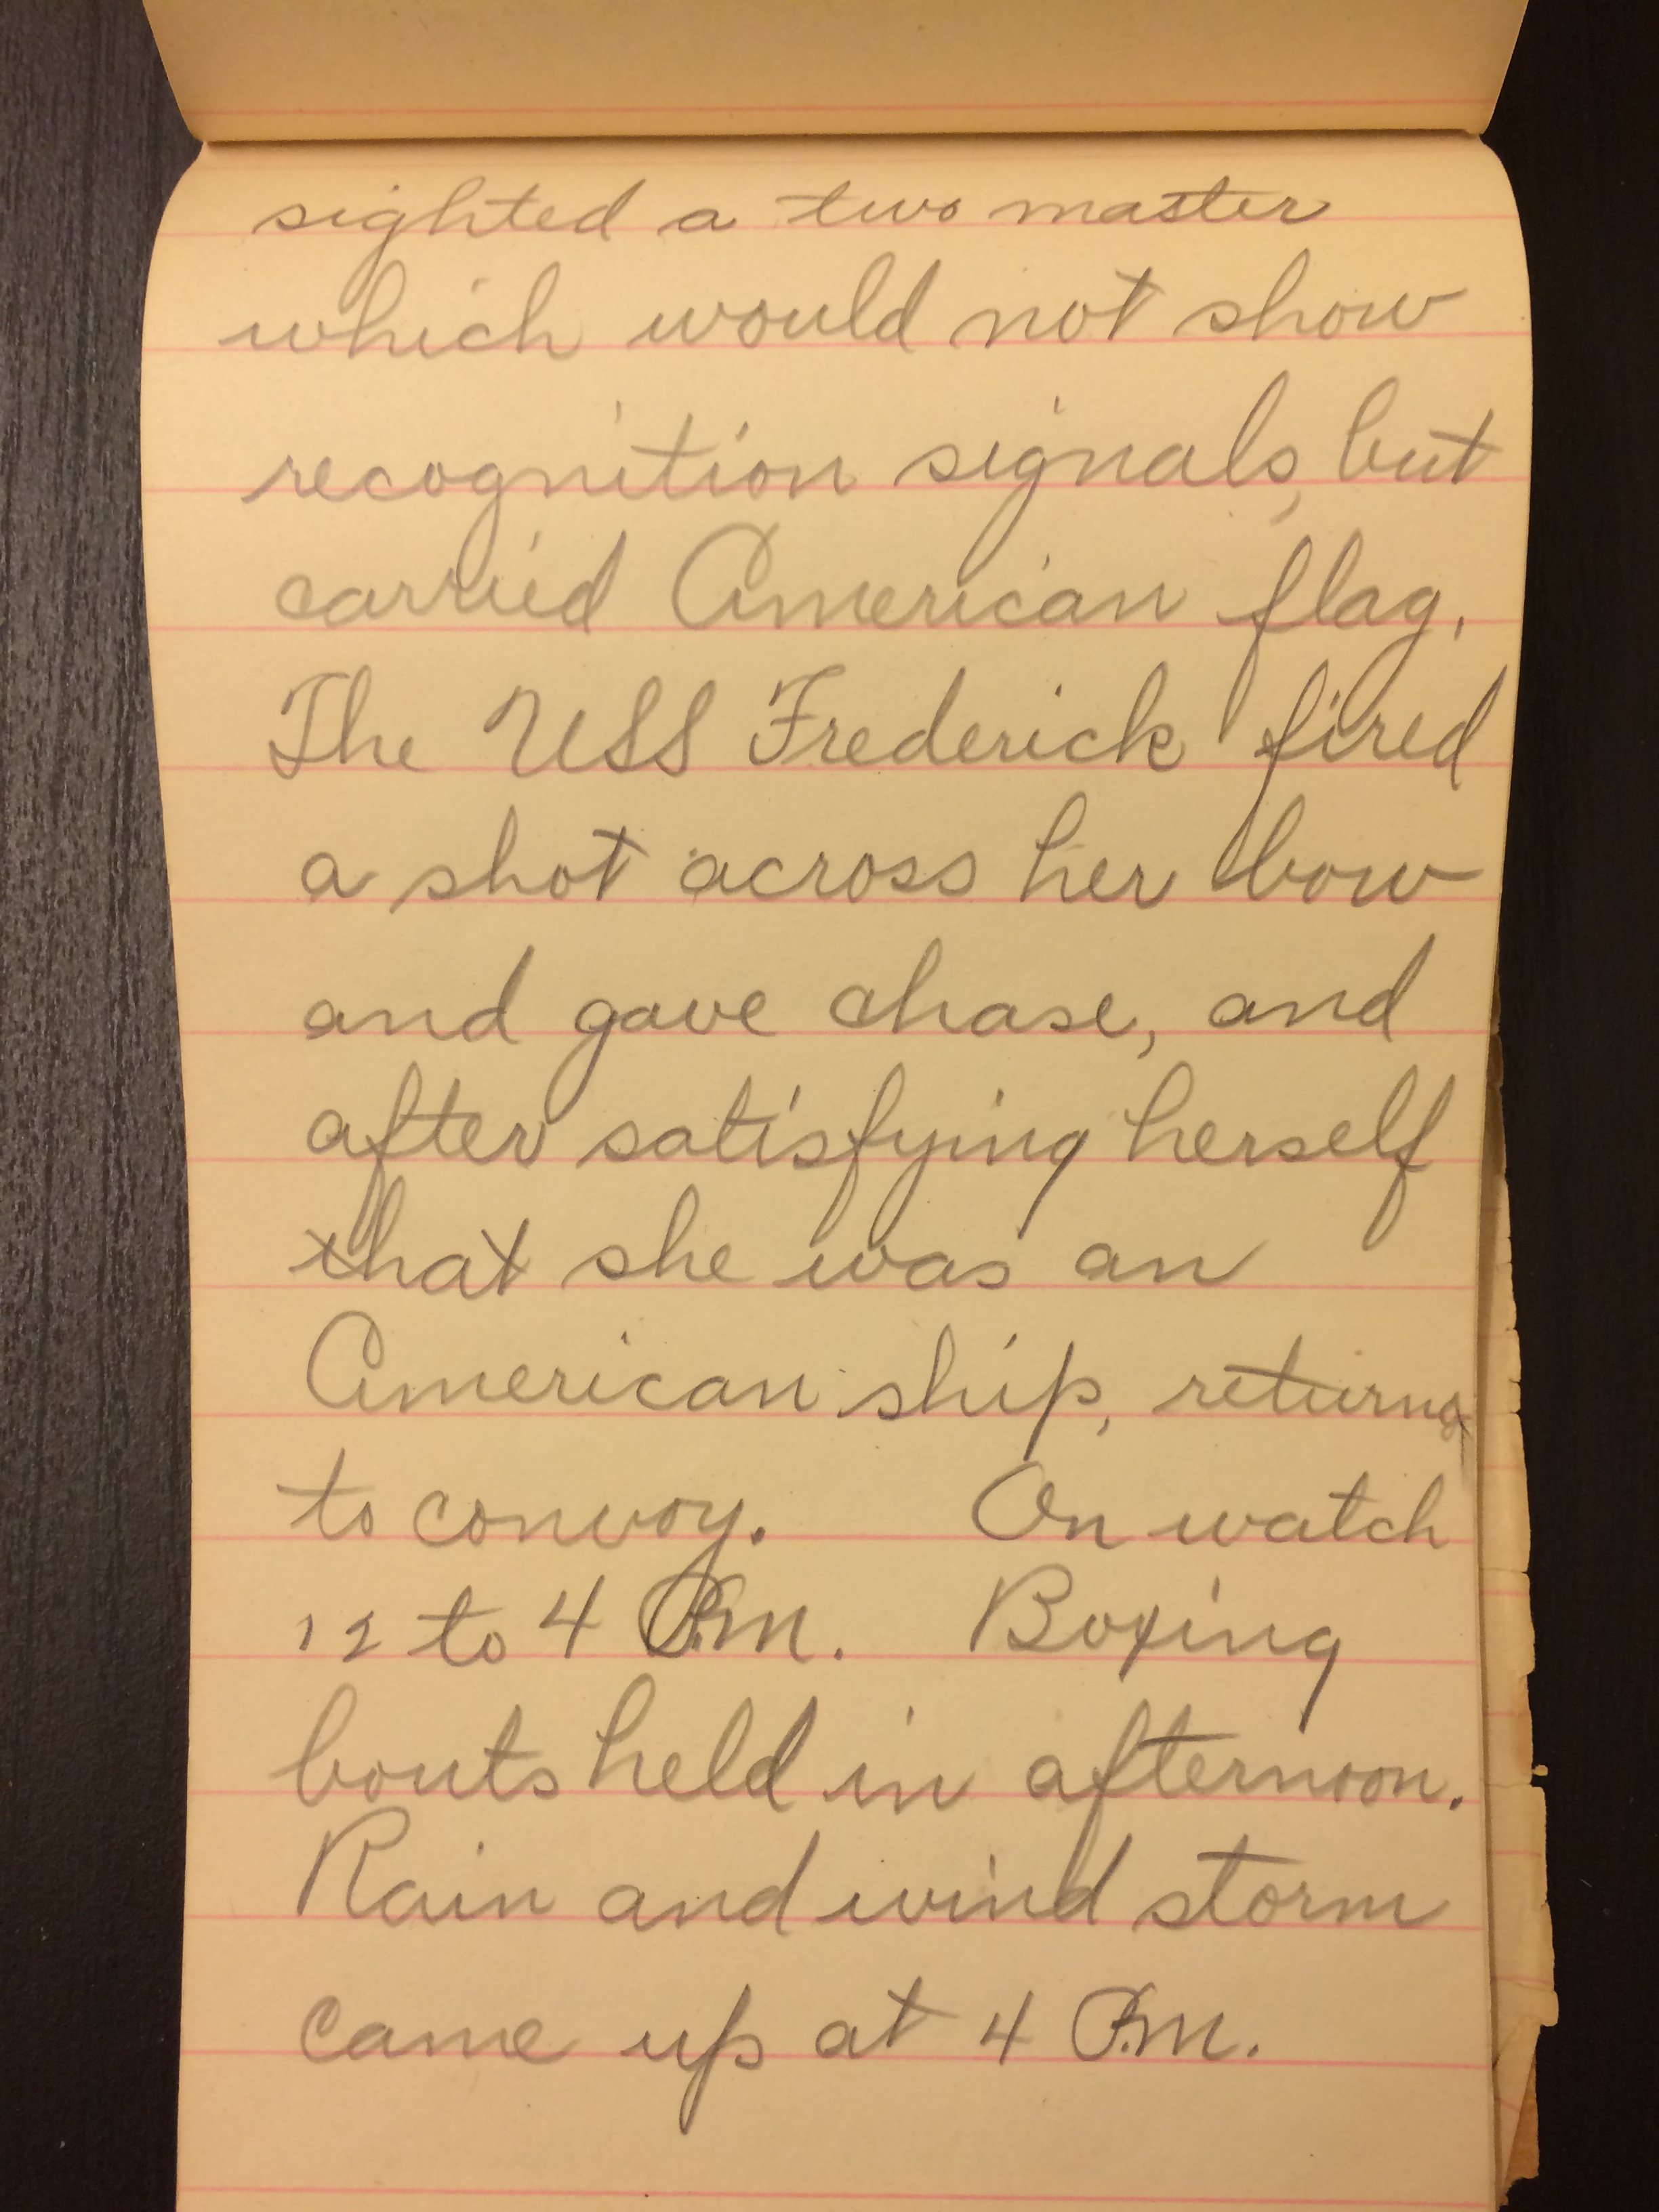 sighted a two master
which would not show
recognition signals, but
carried American flag.
The USS Frederick fired
a shot across her bow
and gave chase, and
after satisfying herself
that she was an
American ship, returned
to convoy. On watch
12 to 4 P.M. Boxing
bouts held in afternoon.
Rain and wind storm
came up at 4 P.M.